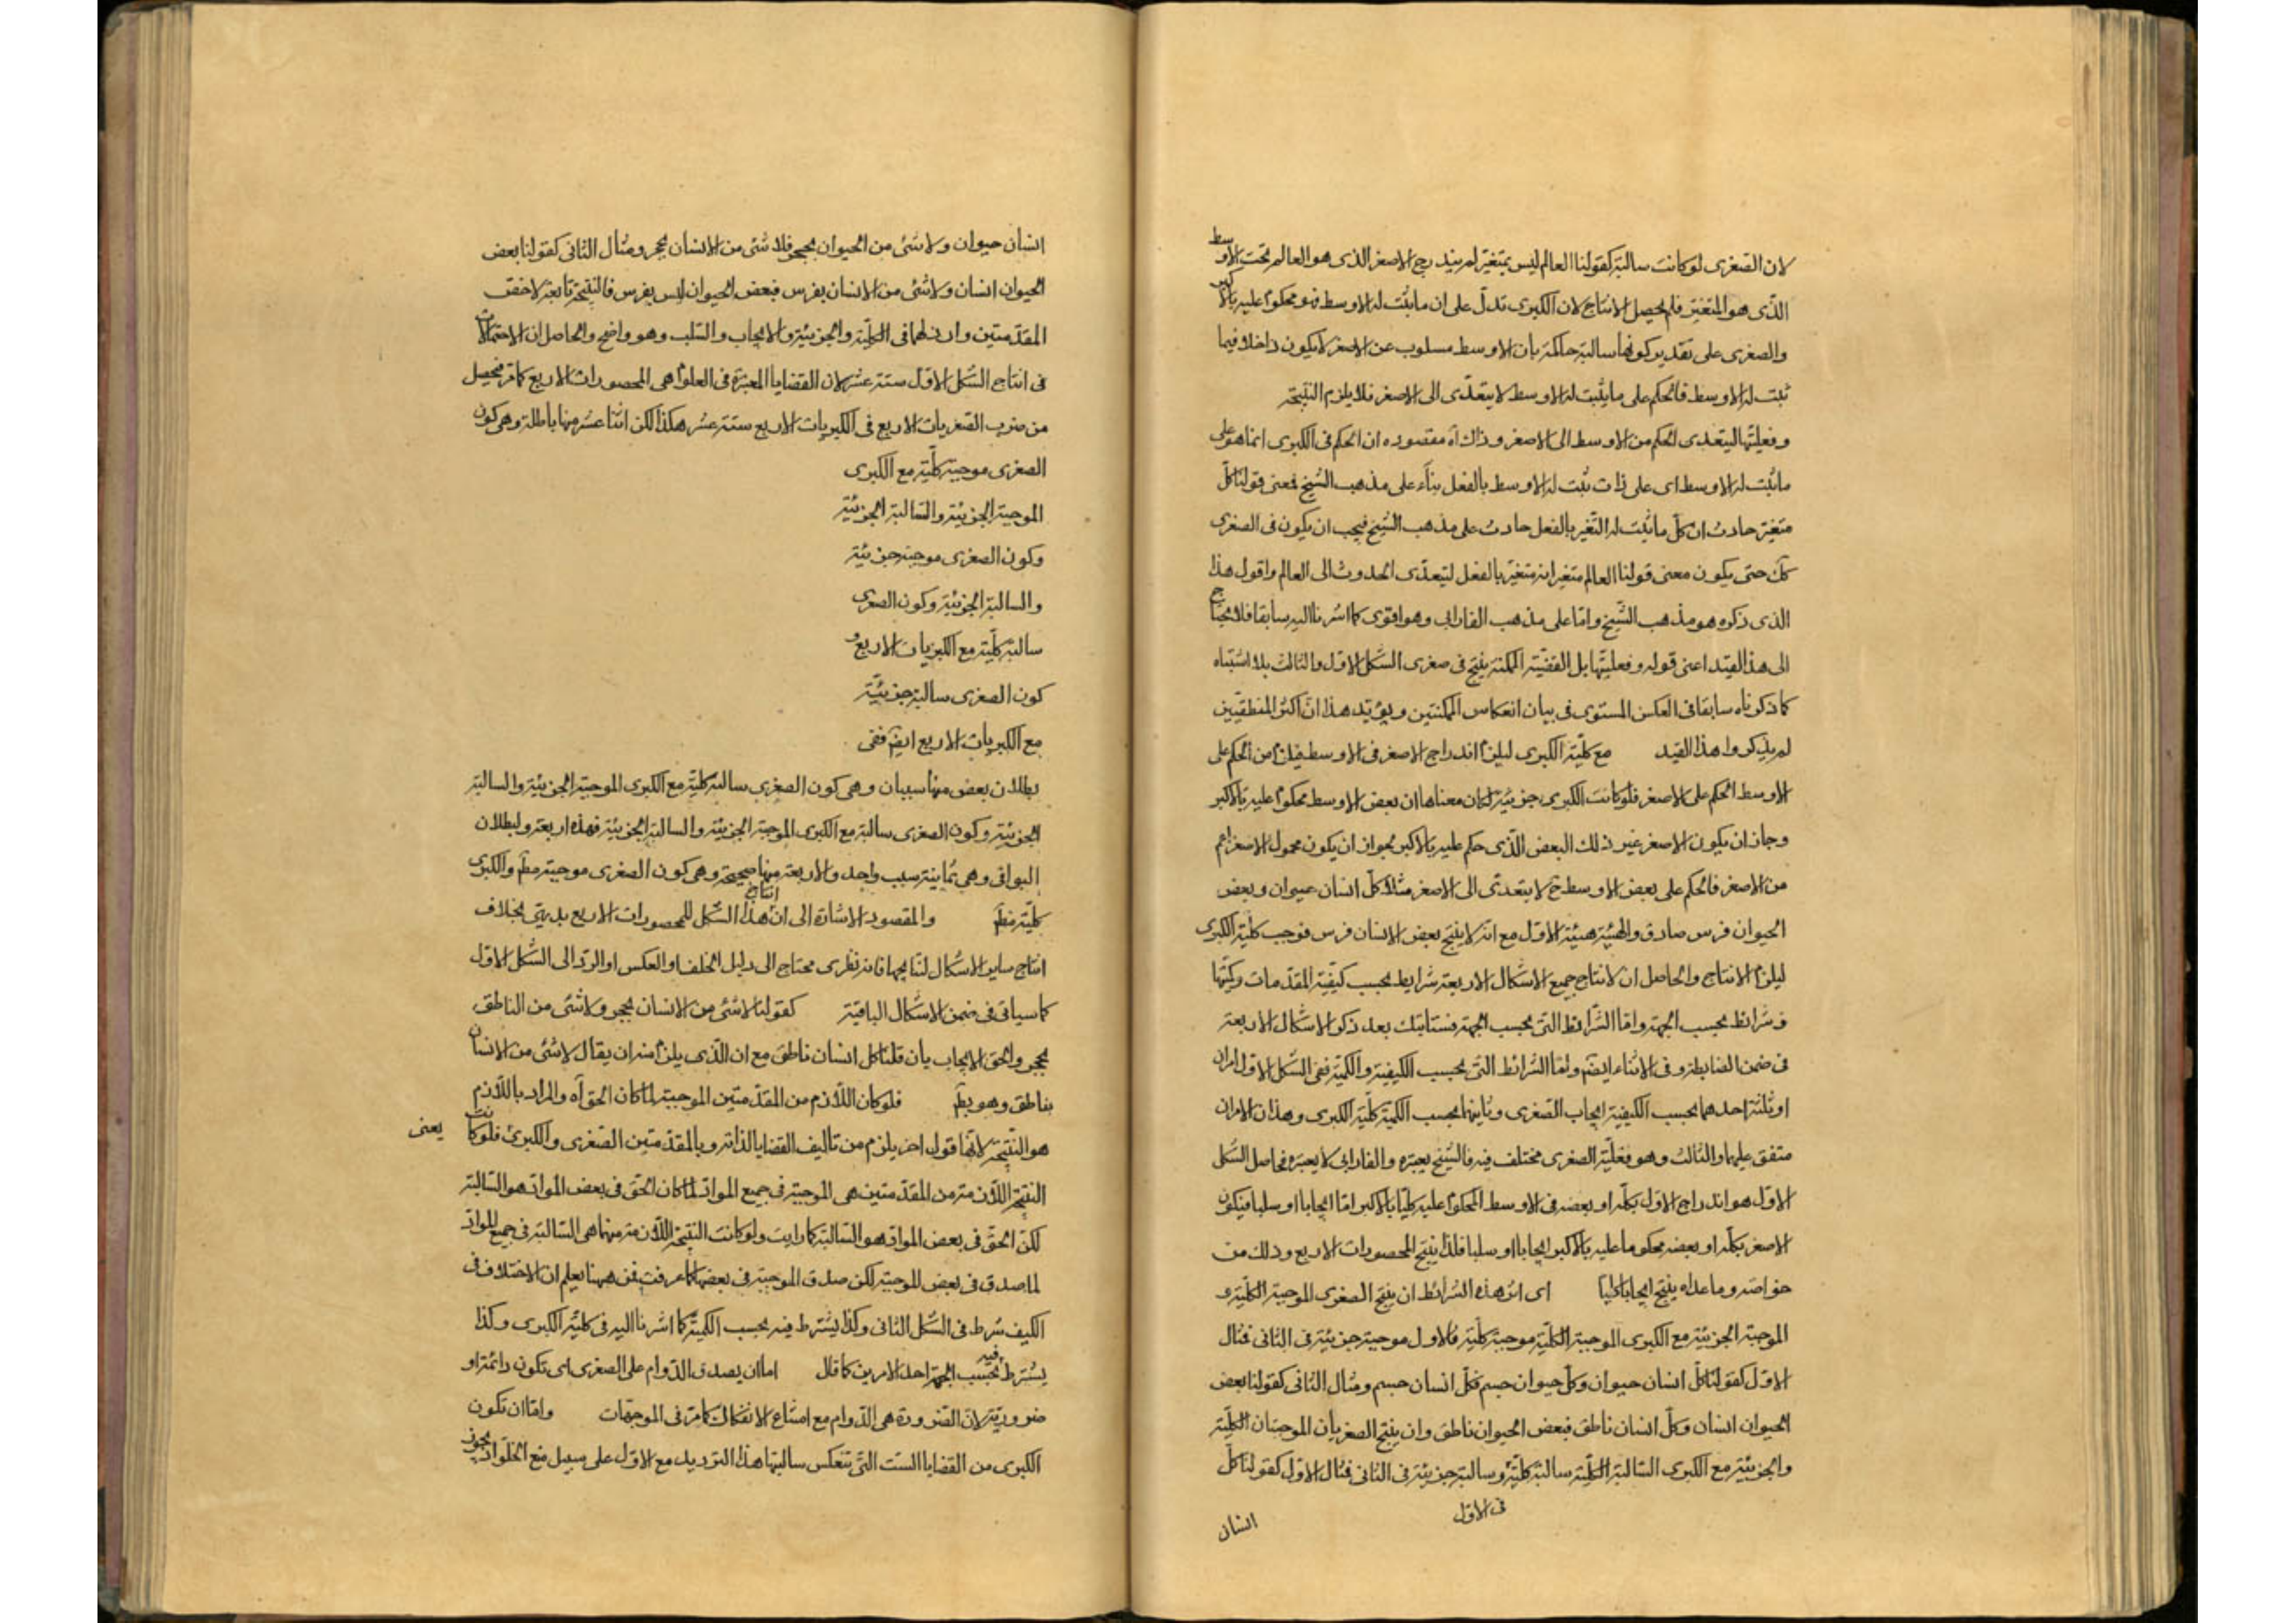 لان الصغرى لو كانت سالبة كقولنا العالم ليس بمتغير لم يندرج الاصغر الذى هو العالم تحت الاوسط
الذى هو المتغير فلم يحصل الانتاج لان الكبرى تدل على ان ما يثبت له الاوسط فهو محكوم عليه بالاكبر
والصغرى على تقدير كونها سالبة حاكمة بان الاوسط مسلوب عن الاصغر لا يكون داخلا فيما
ثبت له الاوسط فالحكم على ما يثبت له الاوسط لا يتعدى الى الاصغر فلا يلزم النتيجة
وفعليتها ليتعدى الحكم من الاوسط الى الاصغر وذلك اه مقصوده ان الحكم فى الكبرى انما هو على
ما يثبت له الاوسط اى على ذات ثبت له الاوسط بالفعل بناء على مذهب الشيخ فمعنى قولنا كل
متغير حادث ان كل ما يثبت له التغير بالفعل حادث على مذهب الشيخ فيجب ان يكون فى الصغرى
كك حتى يكون معنى قولنا العالم متغير انه متغير بالفعل ليتعدى الحدوث الى العالم واقول هذا
الذى ذكره هو مذهب الشيخ واما على مذهب الفارابى وهو اقوى كما اشرنا اليه سابقا فلا يحتاج
الى هذا القيد اعنى قوله وفعليتها بل القضية الممكنة ينتج فى صغرى الشكل الاول والثالث بلا اشتباه
كما ذكرناه سابقا فى العكس المستوى فى بيان انعكاس الممكنتين ويؤيد هذا ان اكثر المنطقيين
لم يذكروا هذا القيد مع كلية الكبرى ليلزم اندراج الاصغر فى الاوسط فيلزم من الحكم على
الاوسط الحكم على الاصغر فلو كانت الكبرى جزئية لكان معناها ان بعض الاوسط محكوم عليه بالاكبر
وجاز ان يكون الاصغر غير ذلك البعض الذى حكم عليه بالاكبر لجواز ان يكون محمول الاصغر اعم
من الاصغر فالحكم على بعض الاوسط ح لا يتعدى الى الاصغر مثلا كل انسان حيوان وبعض
الحيوان فرس صادق والهيئة هيئة الاول مع انه لا ينتج بعض الانسان فرس فوجب كلية الكبرى
ليلزم الانتاج والحاصل ان لانتاج جميع الاشكال الاربعة شرايط بحسب كيفية المقدمات وكميتها
وشرائط بحسب الجهة واما الشرائط التى بحسب الجهة فستاتيك بعد ذكر الاشكال الاربعة
فى ضمن الضابطة وفى الاثناء ايضم واما الشرائط التى بحسب الكيفية والكمية ففى الشكل الاول امران
او ثلثة احدهما بحسب الكيفية ايجاب الصغرى وثانيهما بحسب الكمية كلية الكبرى وهذان الامران
متفق عليهما والثالث وهو فعلية الصغرى مختلف فيه فالشيخ يعتبره والفارابى لا يعتبره فحاصل الشكل
الاول هو اندراج الاول بكله او بعضه فى الاوسط المحكوم عليه كليا بالاكبر اما ايجابا او سلبا فيكون
الاصغر بكله او بعضه محكوما عليه بالاكبر ايجابا او سلبا فلذا ينتج المحصورات الاربع وذلك من
خواصه وما عداه ينتج ايجابا كليا اى اثر هذه الشرائط ان ينتج الصغرى الموجبة الكلية و
الموجبة الجزئية مع الكبرى الموجبة الكلية موجبة كلية فالاول موجبة جزئية فى الثانى فمثال
الاول كقولنا كل انسان حيوان وكل حيوان جسم فكل انسان جسم ومثال الثانى كقولنا بعض
الحيوان انسان وكل انسان ناطق فبعض الحيوان ناطق وان ينتج الصغريان الموجبتان الكلية
والجزئية مع الكبرى السالبة الكلية سالبة كلية وسالبة جزئية فى الثانى فمثال الاول كقولنا كل
فى الاول
انسان
انسان حيوان ولا شئ من الحيوان بحجر فلا شئ من الانسان بحجر ومثال الثانى كقولنا بعض
الحيوان انسان ولا شئ من الانسان بفرس فبعض الحيوان ليس بفرس فالنتيجة تابعة لاخس
المقدمتين وارذلهما فى الكلية والجزئية والايجاب والسلب وهو واضح والحاصل ان الاحتمالات
فى انتاج الشكل الاول ستة عشر لان القضايا المعتبرة فى العلوم هى المحصورات الاربع كما مر فيحصل
من ضرب الصغريات الاربع فى الكبريات الاربع ستة عشر هكذا لكن اثنا عشر منها باطلة وهى كون
الصغرى موجبة كلية مع الكبرى
الموجبة الجزئية والسالبة الجزئية
وكون الصغرى موجبة جزئية
والسالبة الجزئية وكون الصغرى
سالبة كلية مع الكبريات الاربع و
كون الصغرى سالبة جزئية
مع الكبريات الاربع ايضم ففى
بطلان بعض منها سببان وهى كون الصغرى سالبة كلية مع الكبرى الموجبة الجزئية والسالبة
الجزئية وكون الصغرى سالبة مع الكبرى الموجبة الجزئية والسالبة الجزئية فهذه اربعة ولبطلان
البواقى وهى ثمانية سبب واحد والاربعة منها صحيحة وهى كون الصغرى موجبة مطم والكبرى
كلية مطم والمقصود الاشارة الى ان انتاج هذا الشكل للمحصورات الاربع بديهى بخلاف
انتاج ساير الاشكال لنتايجها فانه نظرى محتاج الى دليل الخلف او العكس او الرد الى الشكل الاول
كما سياتى فى ضمن الاشكال الباقية كقولنا لا شئ من الانسان بحجر ولا شئ من الناطق
بحجر والحق الايجاب بان قلنا كل انسان ناطق مع ان الذى يلزم منه ان يقال لا شئ من الانسان
بناطق وهو بطم فلو كان اللازم من المقدمتين الموجبة لما كان الحق اه والمراد باللازم
هو النتيجة لانها قول اخر يلزم من تاليف القضايا لذاته وبالمقدمتين الصغرى والكبرى فلو كانت
يعنى
النتيجة اللازمة من المقدمتين هى الموجبة فى جميع المواد لما كان الحق فى بعض المواد هو السالبة
لكن الحق فى بعض المواد هو السالبة كما رايت ولو كانت النتيجة اللازمة منهما هى السالبة فى جميع المواد
لما صدق فى بعض الموجبة لكن صدق الموجبة فى بعضها كما عرفت فمن ههنا يعلم ان الاختلاف فى
الكيف شرط فى الشكل الثانى وكذا يشترط فيه بحسب الكمية كما اشرنا اليه فى كلية الكبرى وكذا
يشترط فيه بحسب الجهة احد الامرين كما قال اما ان يصدق الدوام على الصغرى اى تكون دائمة او
ضرورية لان الضرورة هى الدوام مع امتناع الانفكاك كما مر فى الموجهات واما ان تكون
الكبرى من القضايا الست التى تنعكس سالبتها هذا الترديد مع الاول على سبيل منع الخلو اذ يجوز